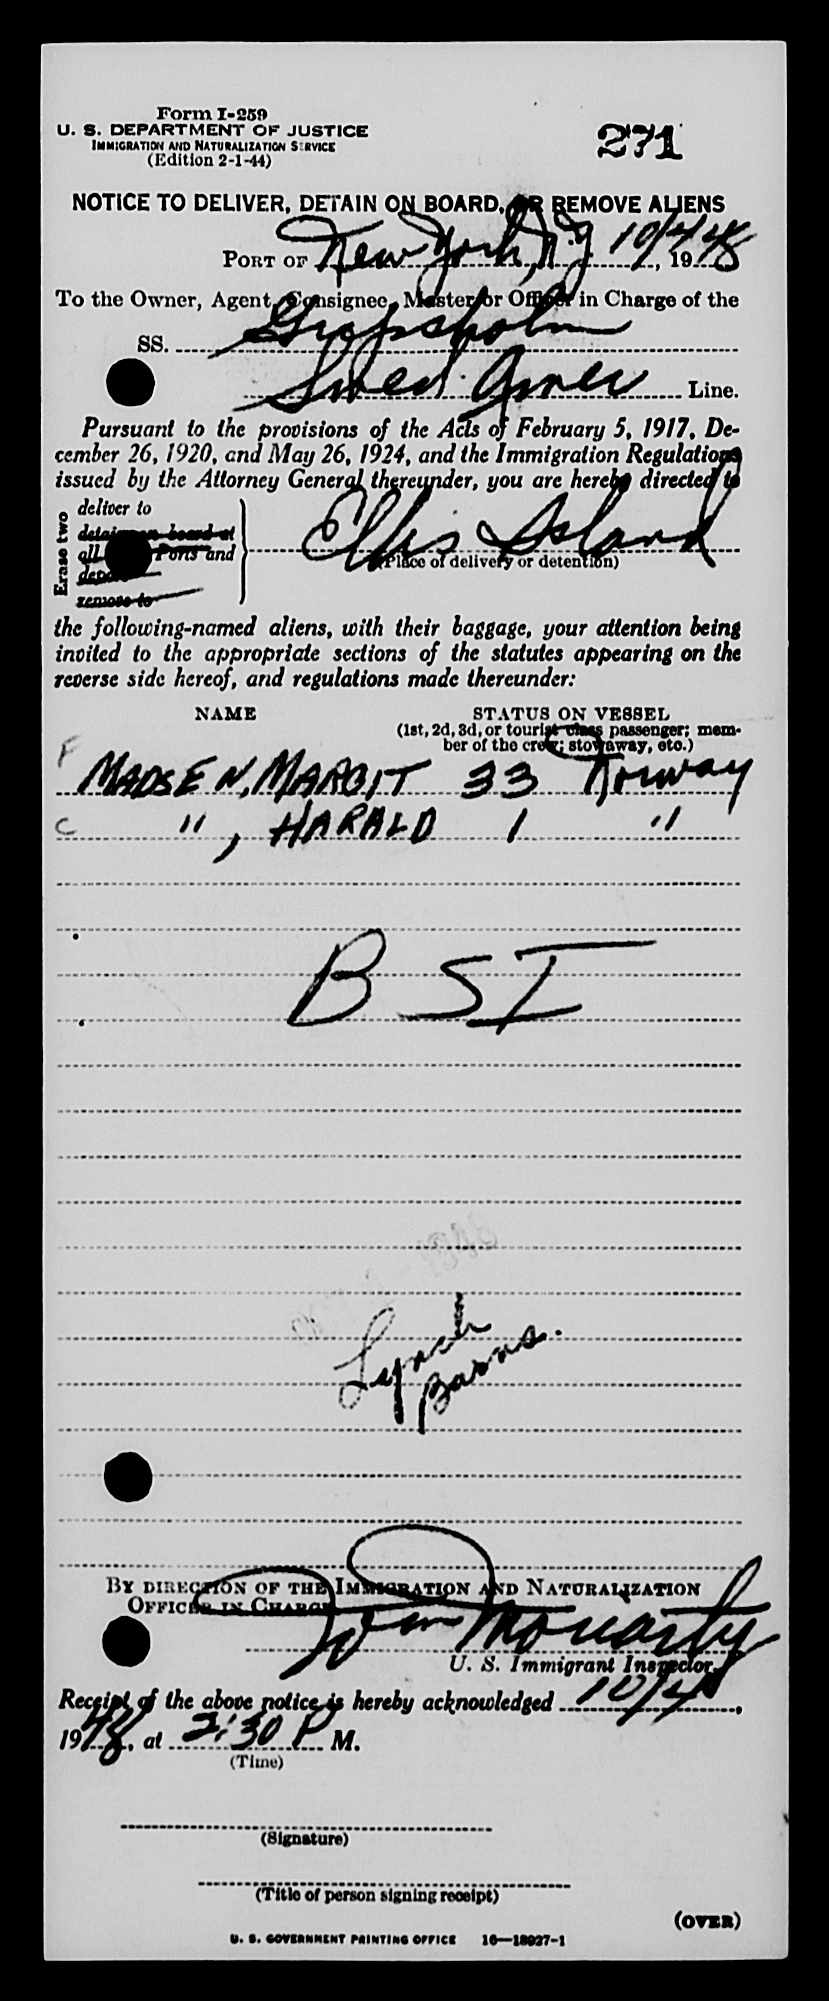 Form I-259
U. S. DEPARTMENT OF JUSTICE
IMMIGRATION AND NATURALIZATION SERVICE
(Edition 2-1-44)
271
NOTICE TO DELIVER, DETAIN ON BOARD, OR REMOVE ALIENS
PORT OF New York, N.Y. 10/4/48, 19 48
To the Owner, Agent, Consignee, Master or Officer in Charge of the
SS. Gripsholm
Swed. Amer Line.
Pursuant to the provisions of the Acts of February 5, 1917, De-
cember 26, 1920, and May 26, 1924, and the Immigration Regulations
issued by the Attorney General thereunder, you are hereby directed to
Erase two
deliver to
detain on board at
all Ports and
remove to
Ellis Island
(Place of delivery or detention)
the following-named aliens, with their baggage, your attention being
invited to the appropriate sections of the statutes appearing on the
reverse side hereof, and regulations made thereunder:
NAME STATUS ON VESSEL
(1st, 2d, 3d, or tourist class passenger; mem-
ber of the crew; stowaway, etc.)
F MADSEN, MARGIT 33 Norway
C " , HARALD 1 "
B S I
Lynch
Barns.
BY DIRECTION OF THE IMMIGRATION AND NATURALIZATION
OFFICER IN CHARGE
Wm Moriarty
U. S. Immigrant Inspector.
Receipt of the above notice is hereby acknowledged 10/4,
1948, at 2:30 P M.
(Time)
(Signature)
(Title of person signing receipt)
(OVER)
U. S. GOVERNMENT PRINTING OFFICE 16—18927-1